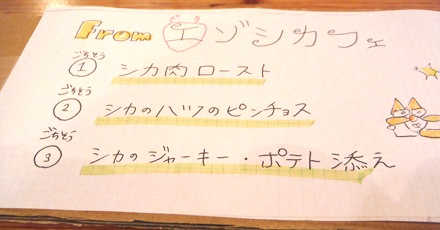 From エゾシカフェ
ごちそう
① シカ肉ロースト
ごちそう
② シカのハツのピンチョス
ごちそう
③ シカのジャーキー・ポテト添え